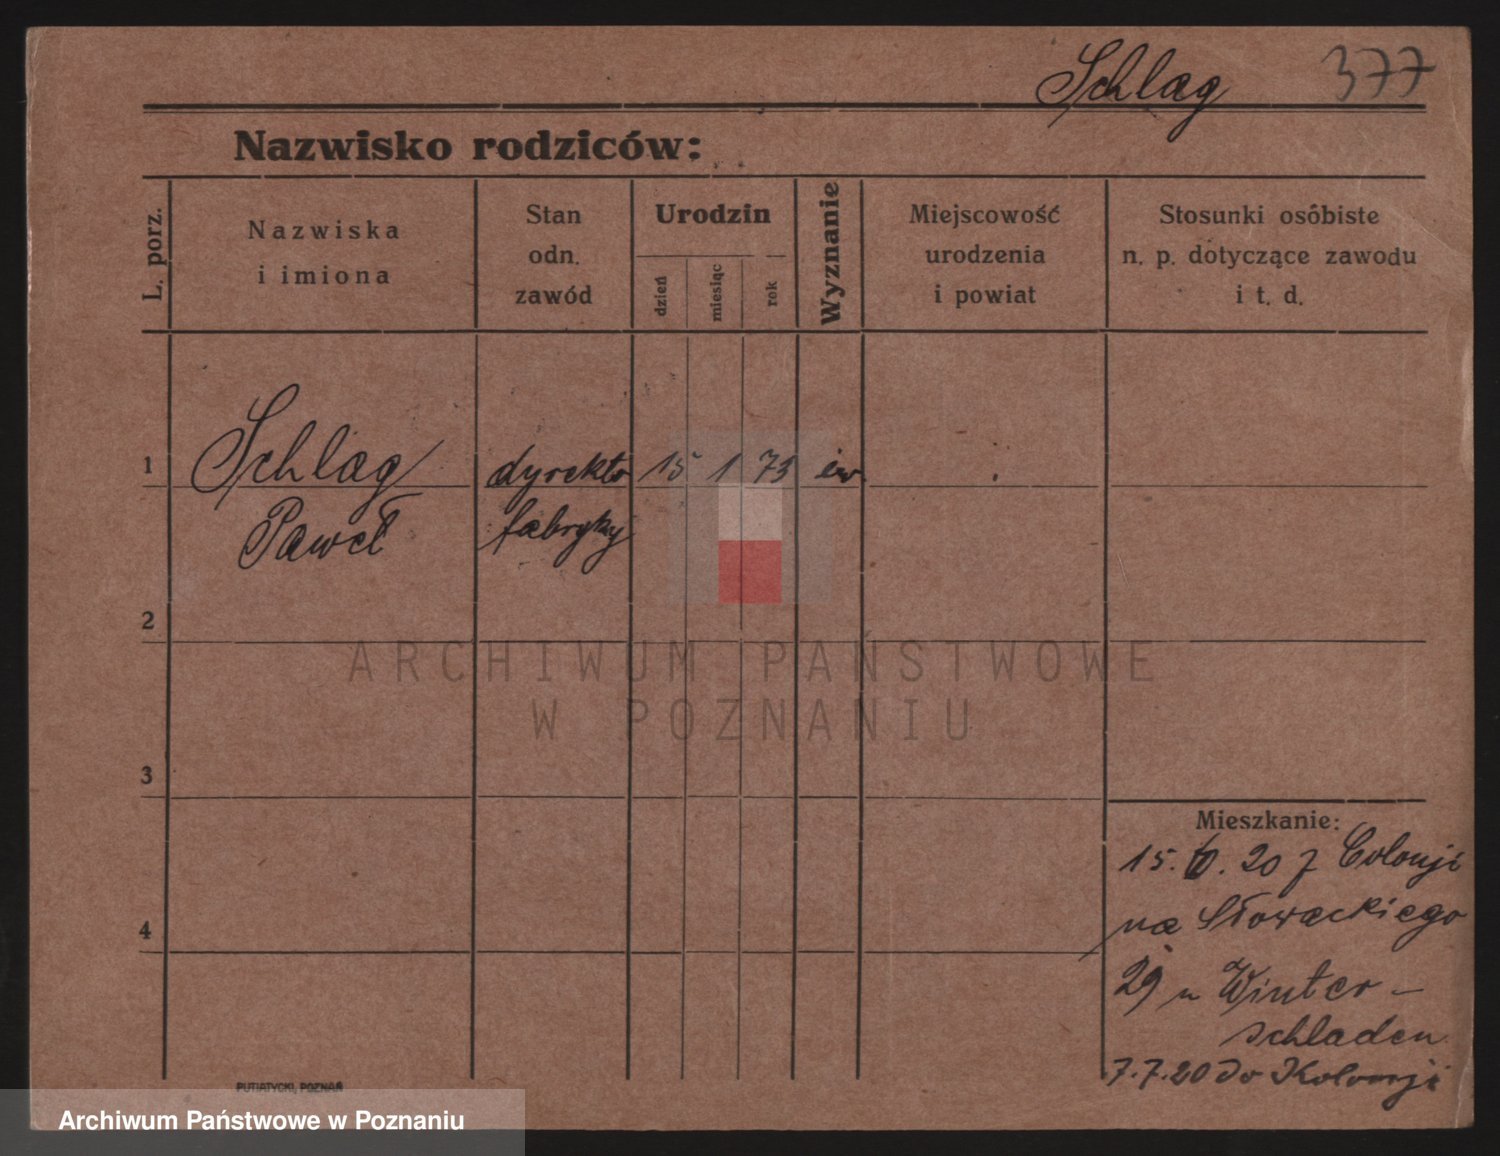 Schlag 377
Nazwisko rodziców:
L. porz.
Nazwiska
i imiona
Stan
odn.
zawód
Urodzin
dzień
miesiąc
rok
Wyznanie
Miejscowość
urodzenia
i powiat
Stosunki osôbiste
n. p. dotyczące zawodu
i t. d.
1 Schlag dyrekto 15 1 73 ew.
Paweł fabryky
2
3
4
Mieszkanie:
15. 6. 20 z Colonji
na Słowackiego
29 u Winter-
schladen
7.7.20 do Kolonji
PUTIATYCKI, POZNAŃ
ARCHIWUM PAŃSTWOWE
W POZNANIU
Archiwum Państwowe w Poznaniu